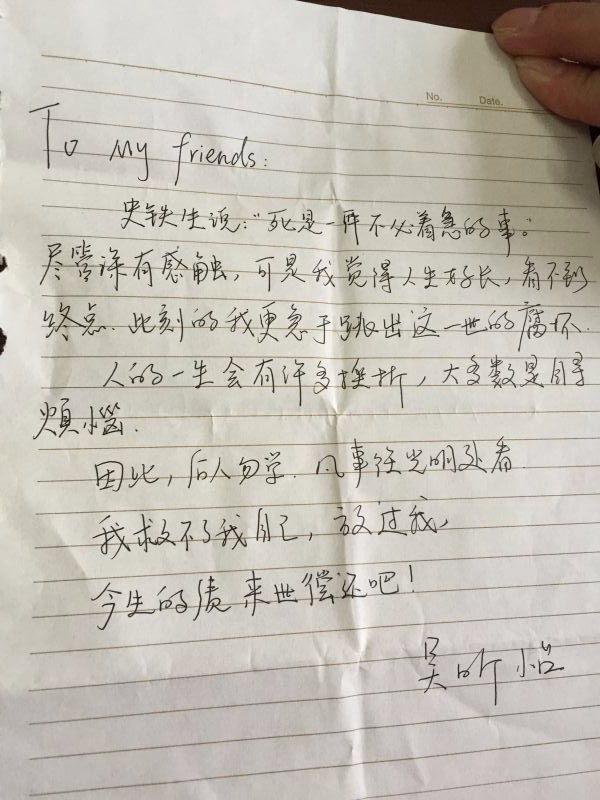 No. Date.
To My friends:
史铁生说:"死是一件不必着急的事。
尽管深有感触,可是我觉得人生好长,看不到
终点.此刻的我更急于跳出这一世的腐坏.
人的一生会有许多挫折,大多数是自寻
煩惱.
因此,后人勿学.凡事往光明处看.
我救不了我自己,放过我,
今生的债来世偿还吧!
吴昕怡